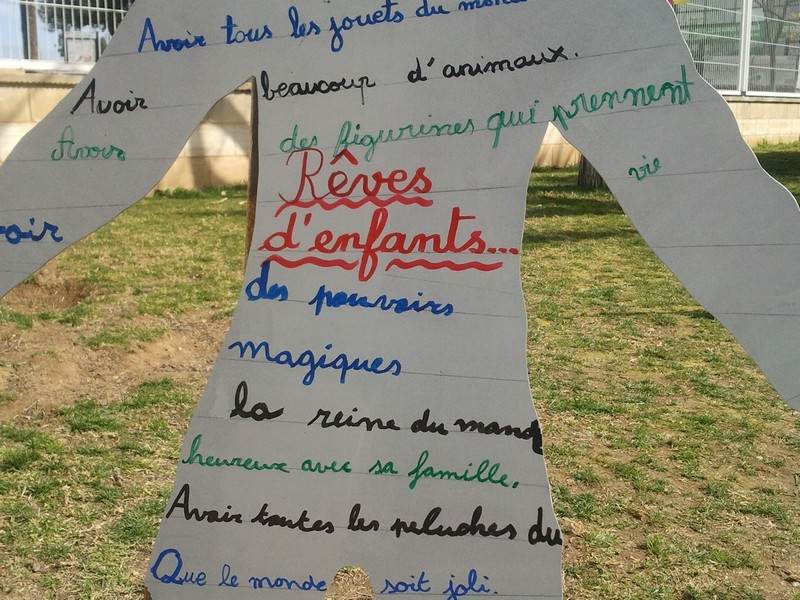 Avoir tous les jouets du monde
Avoir beaucoup d'animaux.
Avoir des figurines qui prennent vie
Rêves
d'enfants...
avoir des pouvoirs
magiques
la reine du mond
heureux avec sa famille.
Avoir toutes les peluches du
Que le monde soit joli.